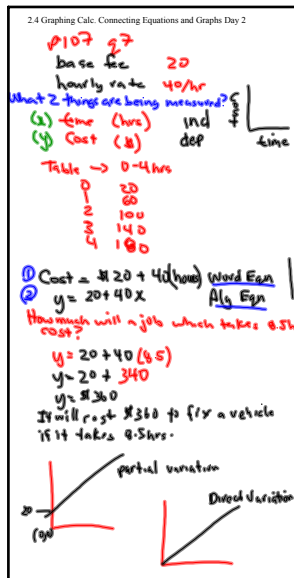 2.4 Graphing Calc. Connecting Equations and Graphs Day 2
p107 q7
base fee 20
hourly rate 40/hr
What 2 things are being measured?
(x) time (hrs) ind
(y) Cost ($) dep
Cost
time
Table → 0-4hrs
0 20
1 60
2 100
3 140
4 180
① Cost = $20 + 40(hours) Word Eqn
② y = 20+40x Alg Eqn
How much will a job which takes 8.5h
cost?
y = 20+40(8.5)
y = 20+ 340
y = $360
It will cost $360 to fix a vehicle
if it takes 8.5hrs.
partial variation
20
(0,0)
Direct Variation